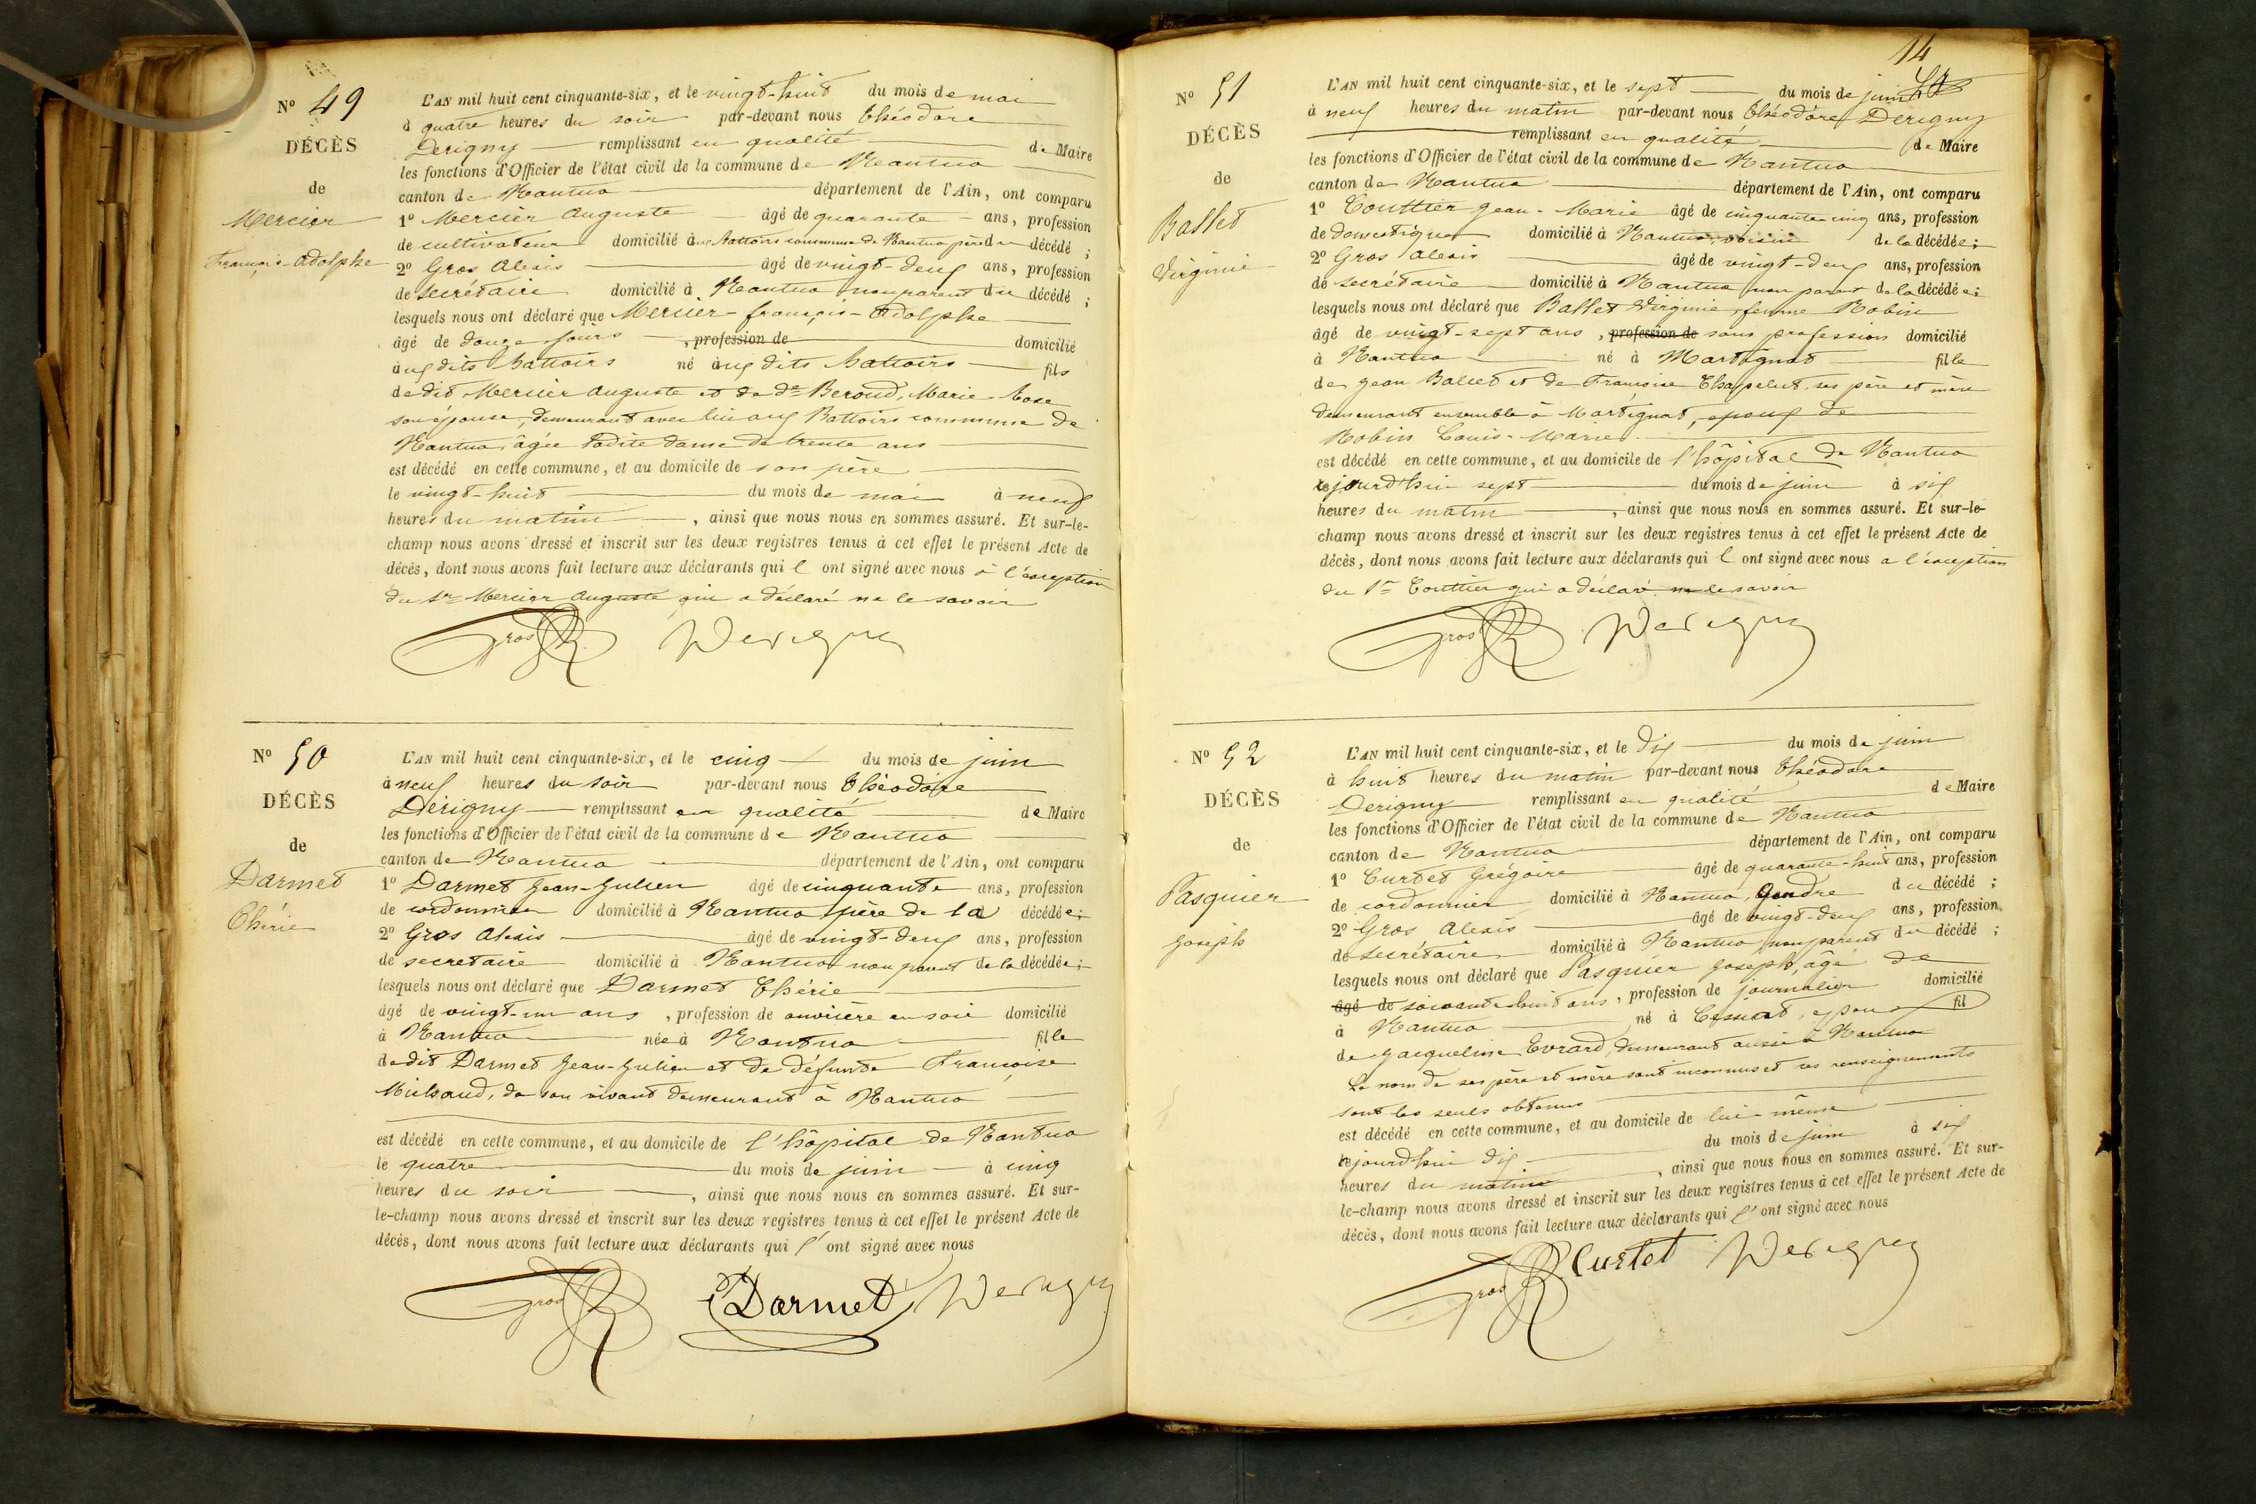 N° 49
DÉCÈS
de
Mercier
François-Adolphe
L'AN mil huit cent cinquante-six, et le vingt-huit du mois de mai
à quatre heures du soir par-devant nous Théodore
Derigny remplissant en qualité de Maire
les fonctions d'Officier de l'état civil de la commune de Nantua
canton de Nantua département de l'Ain, ont comparu
1° Mercier Auguste âgé de quarante ans, profession
de cultivateur domicilié aux Battoirs commune de Nantua père du décédé ;
2° Gros Alexis âgé de vingt-deux ans, profession
de secrétaire domicilié à Nantua non parent du décédé ;
lesquels nous ont déclaré que Mercier-françois-Adolphe
âgé de douze jours , profession de domicilié
aux dits battoirs né aux dits battoirs fils
de dit Mercier Auguste et de de Beroud, Marie-Rose
son épouse, demeurant avec lui aux Battoirs commune de
Nantua, âgée ladite dame de trente ans
est décédé en cette commune, et au domicile de son père
le vingt-huit du mois de mai à neuf
heures du matin , ainsi que nous nous en sommes assuré. Et sur-le-
champ nous avons dressé et inscrit sur les deux registres tenus à cet effet le présent Acte de
décès, dont nous avons fait lecture aux déclarants qui l ont signé avec nous à l'exception
du Sr Mercier Auguste qui a déclaré ne le savoir
Gros Derigny
N° 50
DÉCÈS
de
Darmet
Thérie
L'AN mil huit cent cinquante-six, et le cinq du mois de juin
à neuf heures du soir par-devant nous Théodore
Derigny remplissant en qualité de Maire
les fonctions d'Officier de l'état civil de la commune de Nantua
canton de Nantua département de l'Ain, ont comparu
1° Darmet Jean-Julien âgé de cinquante ans, profession
de cordonnier domicilié à Nantua père de la décédée ;
2° Gros Alexis âgé de vingt-deux ans, profession
de secretaire domicilié à Nantua non parent de la décédée ;
lesquels nous ont déclaré que Darmet Thérie
âgé de vingt-un ans , profession de ouvrière en soie domicilié
à Nantua née à Nantua fille
de dit Darmet Jean-Julien et de défunte Françoise
de son vivant demeurant à Nantua
est décédé en cette commune, et au domicile de l'hôpital de Nantua
le quatre du mois de juin à cinq
heures du soir , ainsi que nous nous en sommes assuré. Et sur-
le-champ nous avons dressé et inscrit sur les deux registres tenus à cet effet le présent Acte de
décès, dont nous avons fait lecture aux déclarants qui l' ont signé avec nous
Gros Darmet Derigny
14
N° 51
DÉCÈS
de
Ballet
Virginie
L'AN mil huit cent cinquante-six, et le sept du mois de juin
à neuf heures du matin par-devant nous Théodore Derigny
remplissant en qualité de Maire
les fonctions d'Officier de l'état civil de la commune de Nantua
canton de Nantua département de l'Ain, ont comparu
1° Couttier Jean-Marie âgé de cinquante cinq ans, profession
de domestique domicilié à Nantua, voisin de la décédée ;
2° Gros Alexis âgé de vingt-deux ans, profession
de secrétaire domicilié à Nantua non parent de la décédée ;
lesquels nous ont déclaré que Ballet Virginie, femme Robin
âgé de vingt-sept ans , profession de sans profession domicilié
à Nantua né à Martignat fille
de Jean Ballet et de Françoise Chapelut ses père et mère
demeurant ensemble à Martignat, epoux de
Robin Louis-Marie
est décédé en cette commune, et au domicile de l'hôpital de Nantua
cejourd'hui sept du mois de juin à six
heures du matin , ainsi que nous nous en sommes assuré. Et sur-le-
champ nous avons dressé et inscrit sur les deux registres tenus à cet effet le présent Acte de
décès, dont nous avons fait lecture aux déclarants qui l ont signé avec nous a l'exception
du Sr Couttier qui a déclaré ne le savoir
Gros Derigny
N° 52
DÉCÈS
de
Pasquier
Joseph
L'AN mil huit cent cinquante-six, et le dix du mois de juin
à huit heures du matin par-devant nous Théodore
Derigny remplissant en qualité de Maire
les fonctions d'Officier de l'état civil de la commune de Nantua
canton de Nantua département de l'Ain, ont comparu
1° Curtet Grégoire âgé de quarante-huit ans, profession
de cordonnier domicilié à Nantua, Gendre du décédé ;
2° Gros Alexis âgé de vingt-deux ans, profession
de secrétaire domicilié à Nantua non parent du décédé ;
lesquels nous ont déclaré que Pasquier Joseph, âgé de
âgé de soixante huit ans , profession de journalier domicilié
à Nantua né à epoux fil
de Jacqueline Evrard, demeurant aussi à Nantua
Le nom de ses père et mère sont inconnus et ces renseignements
sont les seuls obtenus
est décédé en cette commune, et au domicile de lui-même
cejourd'hui dix du mois de juin à six
heures du matin , ainsi que nous nous en sommes assuré. Et sur-
le-champ nous avons dressé et inscrit sur les deux registres tenus à cet effet le présent Acte de
décès, dont nous avons fait lecture aux déclarants qui l' ont signé avec nous
Gros Curtet Derigny